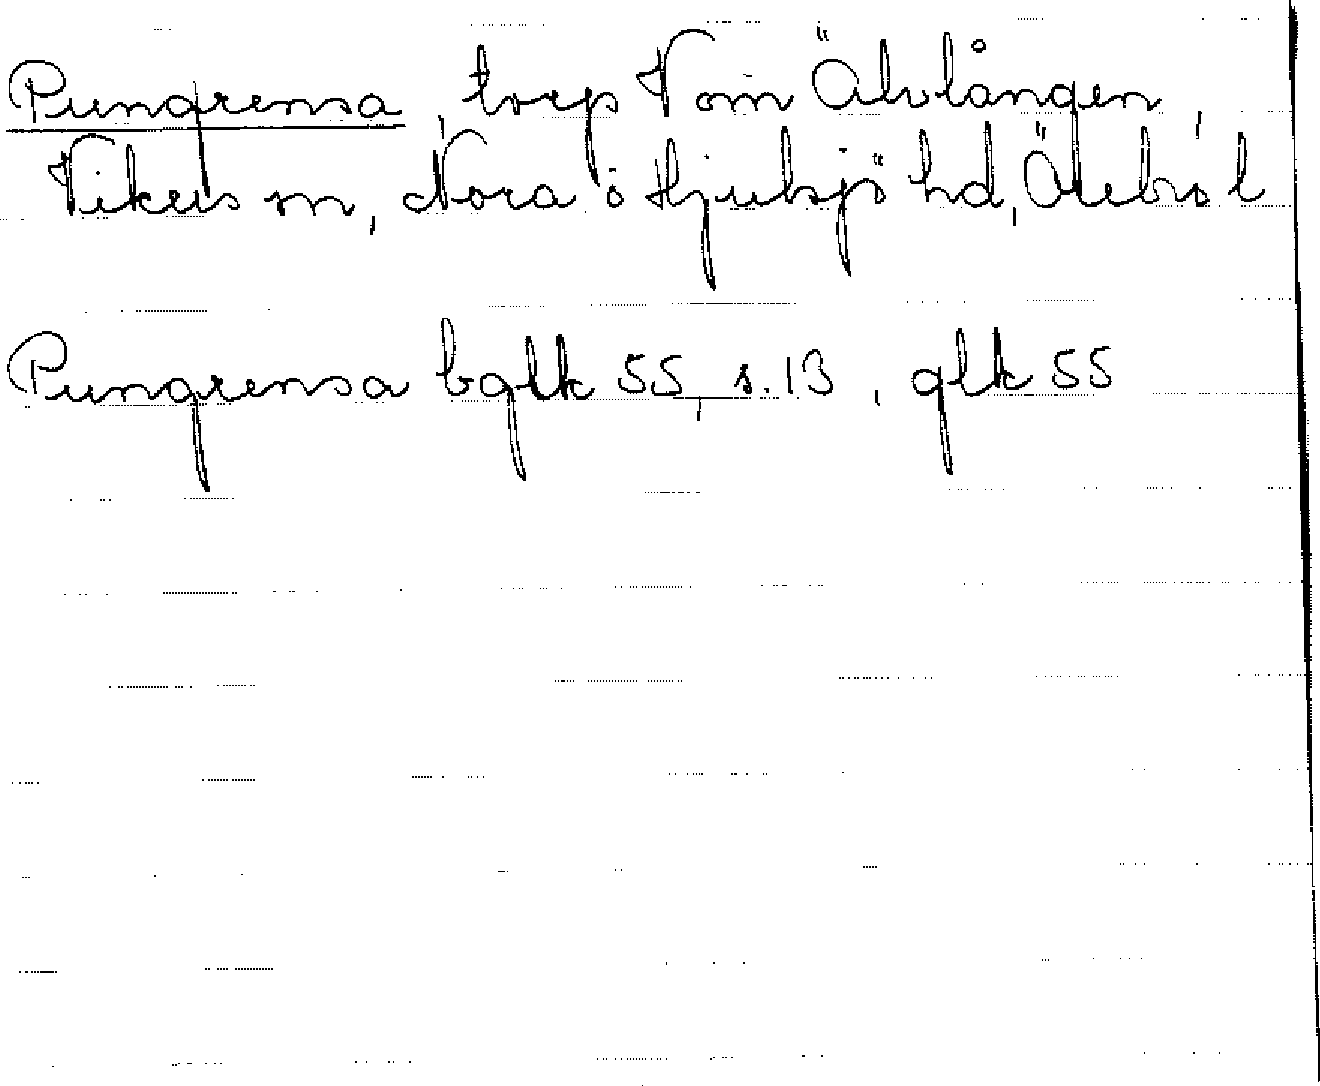 Pungrensa, torp V om Älvlången,
Vikers sn, Nora o Hjulsjö hd, Örebro l
Pungrensa bglk 55, s. 13, glk 55